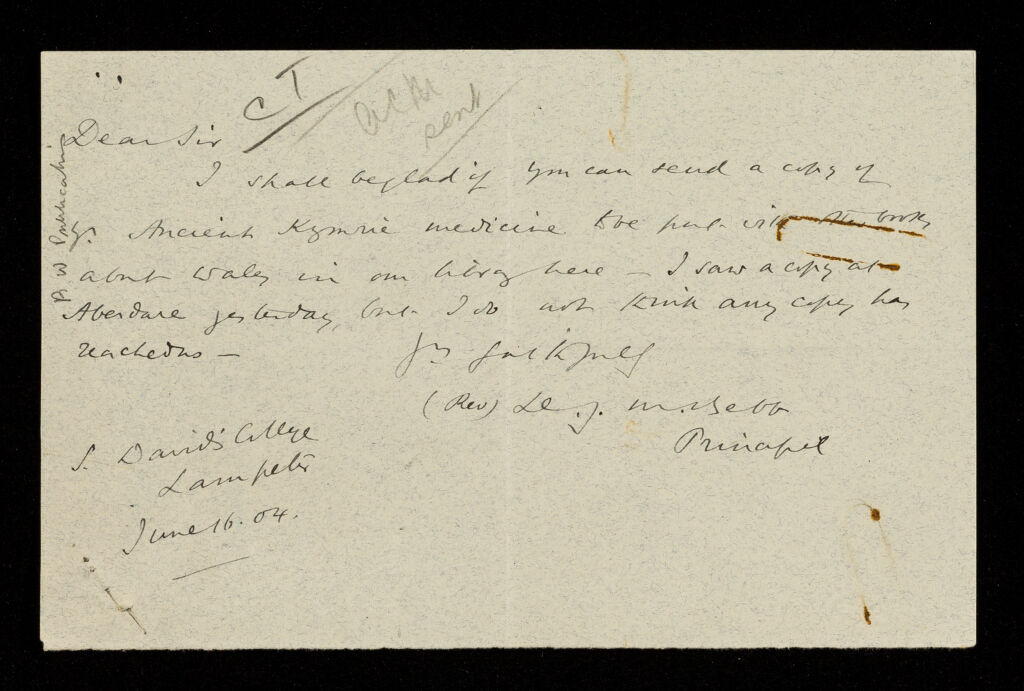 C T
sent
B W Publication
Dear Sir
I shall be glad if you can send a copy of
yr. Ancient Kymric medicine to be put with other books
about Wales in our library here – I saw a copy at
Aberdare yesterday, but I do not think any copy has
reached us –
Yrs faithfully
(Rev) Ll. J. M. Bebb
Principal
S. David's College
Lampeter
June 16. 04.